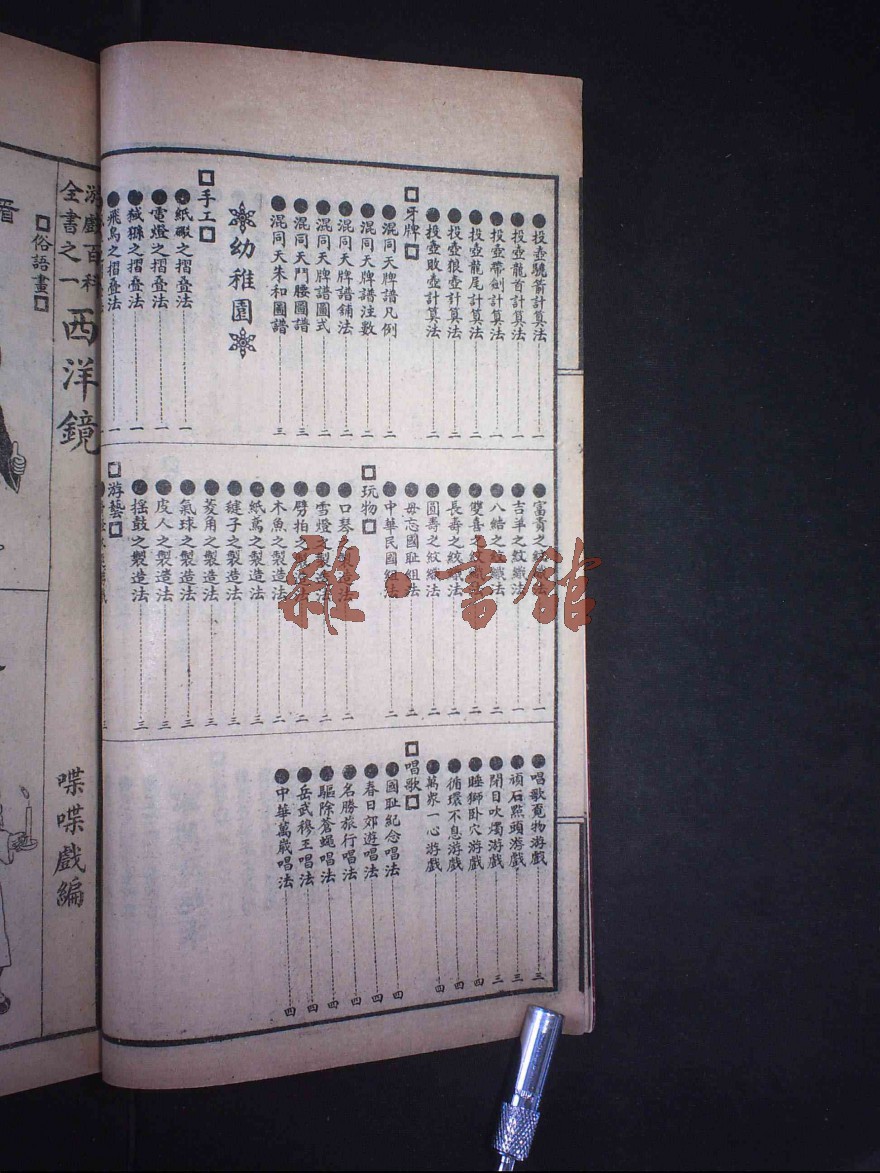 ●投壺驍箭計算法……一
●投壺龍首計算法……一
●投壺帶劍計算法……一
●投壺龍尾計算法……二
●投壺狼壺計算法……二
●投壺敗壺計算法……二
□牙牌□
●混同天牌譜凡例……二
●混同天牌譜注數……二
●混同天牌譜鋪法……二
●混同天牌譜圖式……二
●混同天門腰圖譜……三
●混同天朱和圖譜……三
幼稚園
□手工□
●紙鍛之摺叠法……一
●電燈之摺叠法……一
●之摺叠法……一
●飛鳥之摺叠法……一
●富貴之紋織法……一
●吉羊之紋織法……一
●八結之紋織法……二
●雙喜之紋織法……二
●長壽之紋織法……二
●圓壽之紋織法……二
●毋忘國耻組法……二
●中華民國組法……二
□玩物□
●口琴之製造法……二
●雪燈之製造法……二
●劈拍之製造法……二
●木魚之製造法……二
●紙鳶之製造法……三
●毽子之製造法……三
●菱角之製造法……三
●氣球之製造法……三
●皮人之製造法……三
●搖鼓之製造法……三
□游藝□
●唱歌覓物游戲……三
●頑石點頭游戲……三
●閉目吹燭游戲……三
●睡獅卧穴游戲……四
●循環不息游戲……四
●萬衆一心游戲……四
□唱歌□
●國耻紀念唱法……四
●春日郊遊唱法……四
●名勝旅行唱法……四
●驅除蒼蠅唱法……四
●岳武穆王唱法……四
●中華萬歲唱法……四
游戲百科
全書之一
西洋鏡
喋喋戲編
□俗語畫□
雜·書館